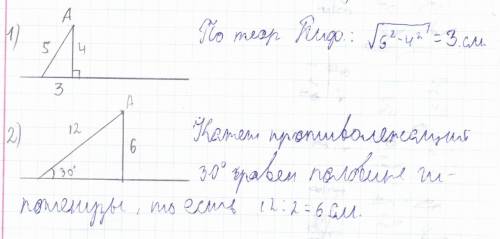 1) A 5 4 3 По теор Пиф.: √5²-4² = 3 см.
2) A 12 6 30° Катет противолежащий
30° равен половине ги-
потенузы, то есть 12:2=6 см.